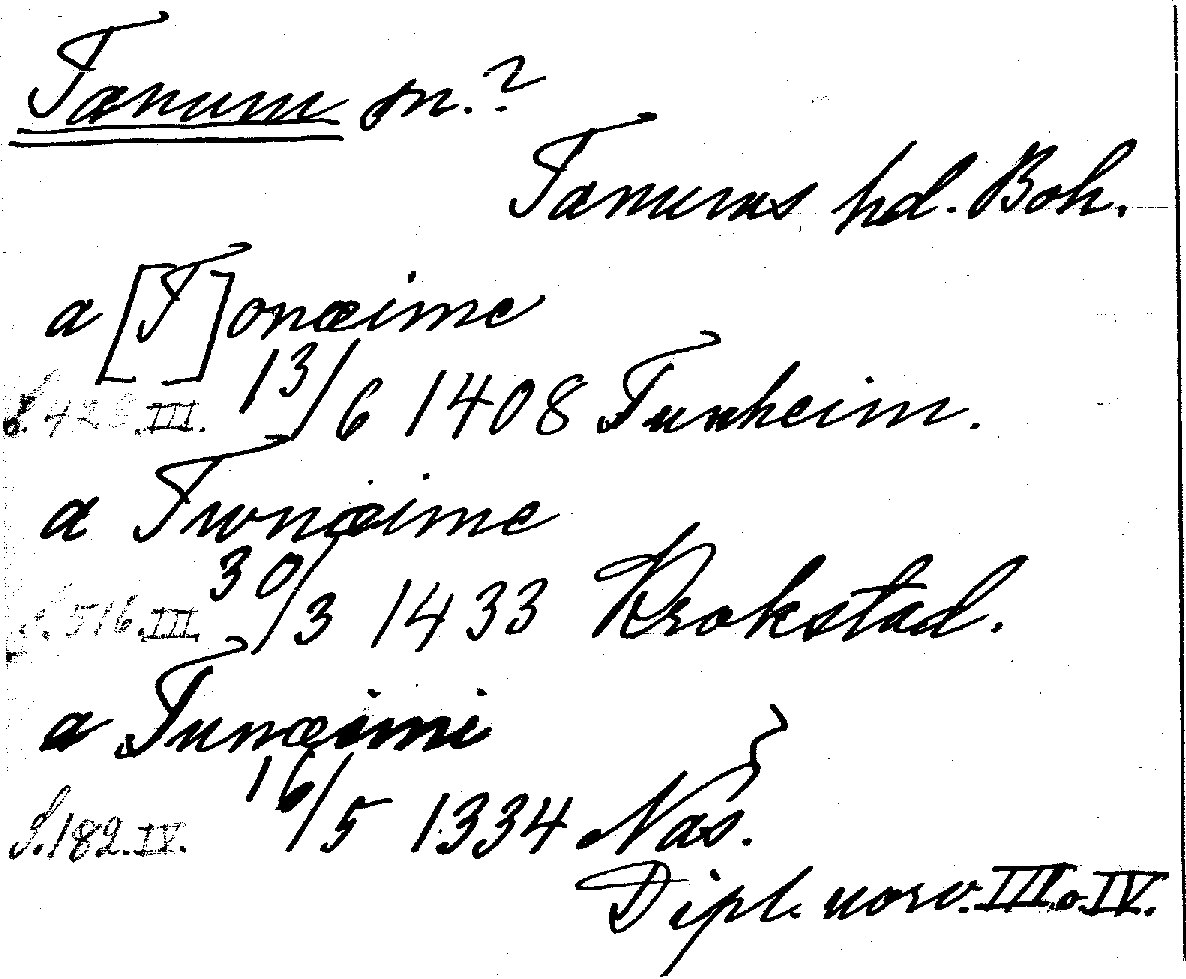 Tanum sn.?
Tanums hd. Boh.
a [T]onæime
S. 428. III. 13/6 1408 Tunheim.
a Twnæime
S. 516. III. 30/3 1433 Krokstad.
a Tunæimi
S. 182. IV. 16/5 1334 Näs.
Dipl. norv. III. o. IV.